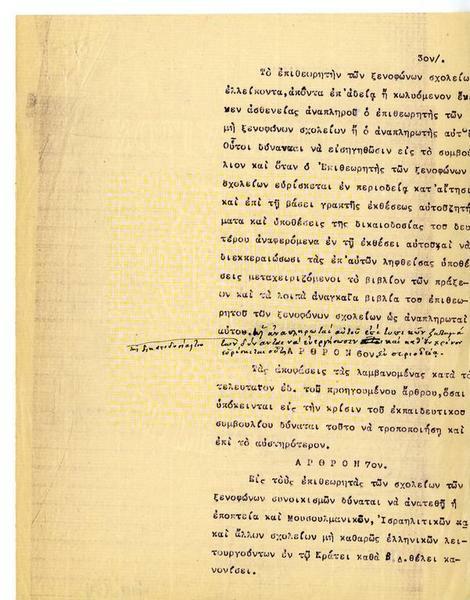 3ον/.
Τὸ ἐπιθεωρητὴν τῶν ξενοφώνων σχολείων
ἐλλείκοντα, ἀκόντα ἐπ'ἀδείᾳ ἢ κωλυόμενον ἕνε-
κεν ἀσθενείας ἀναπληροῖ ὁ ἐπιθεωρητὴς τῶν
μὴ ξενοφώνων σχολείων ἢ ὁ ἀναπληρωτὴς αὐτ
Οὗτοι δύνανται νὰ εἰσηγηθῶσιν εἰς τὸ συμβού
λιον καὶ ὅταν ὁ Ἐπιθεωρητὴς τῶν ξενοφώνων
σχολείων εὑρίσκεται ἐν περιοδείᾳ κατ'αἴτησι
καὶ ἐπὶ τῇ βάσει γραπτῆς ἐκθέσεως αὐτοῦζητή
ματα καὶ ὑποθέσεις τῆς δικαιοδοσίας τοῦ δευ
τέρου ἀναφερόμενα ἐν τῇ ἐκθέσει αὐτοῦκαὶ νὰ
διεκπεραιώσωσι τὰς ἐπ'αὐτῶν ληφθείσας ὑποθέ
σεις μεταχειριζόμενοι τὸ βιβλίον τῶν πράξε-
ων καὶ τὰ λοιπὰ ἀναγκαῖα βιβλία τοῦ ἐπιθεω-
ρητοῦ τῶν ξενοφώνων σχολείων ὡς ἀναπληρωταὶ
αὐτοῦ.
καὶ
ΑΡΘΡΟΝ 6ον. περιοδείᾳ
Τὰς ἀποφάσεις τὰς λαμβανομένας κατὰ τὸ
τελευταῖον ἐδ. τοῦ προηγουμένου ἄρθρου, ὅσαι
ὑπόκεινται εἰς τὴν κρίσιν τοῦ ἐκπαιδευτικοῦ
συμβουλίου δύναται τοῦτο νὰ τροποποιήσῃ καὶ
ἐπὶ τὸ αὐστηρότερον.
ΑΡΘΡΟΝ 7ον.
Εἰς τοὺς ἐπιθεωρητὰς τῶν σχολείων τῶν
ξενοφώνων συνοικισμῶν δύναται νὰ ἀνατεθῇ ἡ
ἐποπτεία καὶ Μουσουλμανικῶν, Ἰσραηλιτικῶν κα
καὶ ἄλλων σχολείων μὴ καθαρῶς ἑλληνικῶν λει-
τουργούντων ἐν τῷ Κράτει καθὰ Β.Δ. θέλει κα-
νονίσει.